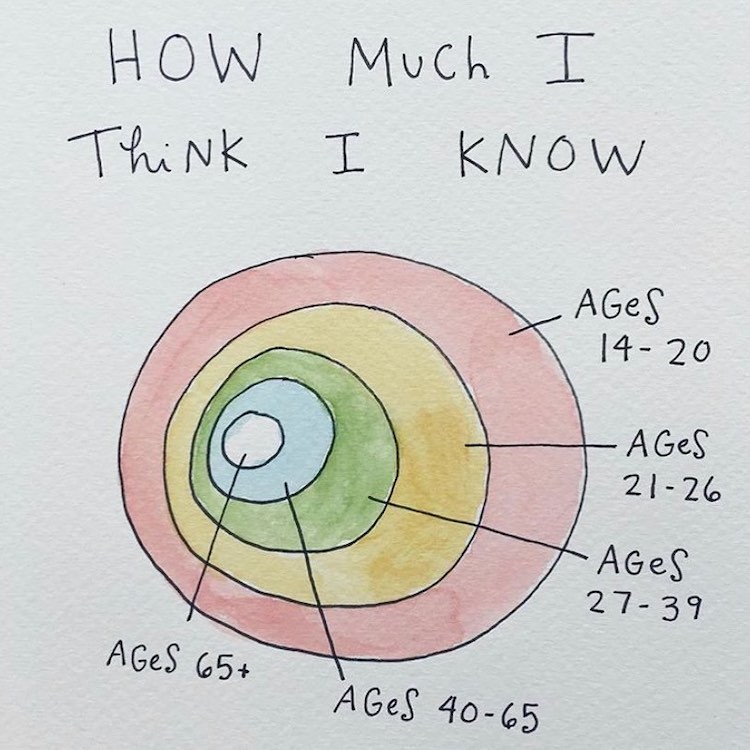 HOW Much I
ThiNK I KNOW
AGeS
14-20
AGeS
21-26
AGeS
27-39
AGeS 65+
AGeS 40-65